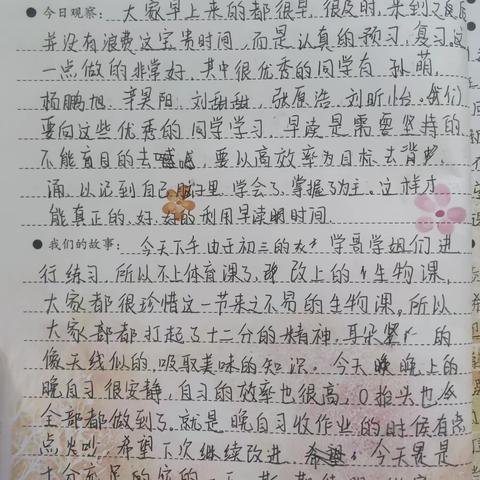 今日观察：大家早上来的都很早，很及时，来到之后
并没有浪费这宝贵时间，而是认真的预习、复习。这
一点做的非常好，其中很优秀的同学有 孙萌，
杨鹏旭、辛昊阳、刘甜甜，张原浩、刘昕怡。我们
要向这些优秀的同学学习，早读是需要坚持的
不能盲目的去喊，要以高效率为目标去背
诵，以记到自己脑子里，学会了，掌握了为主。这样才
能真正的、好好的利用早读时间。
我们的故事：今天下午由于初三的 学哥学姐们进
行练习，所以不上体育课了，改上的生物课，
大家都很珍惜这一节来之不易的生物课。所以
大家都打起了十二分的精神，耳朵 的
像天线似的，吸取美味的知识。今天晚上的
晚自习很安静，自习的效率也很高，0抬头也
全部都做到了。就是晚自习收作业的时候有点
点火吵，希望下次继续改进。今天是
十分充足的